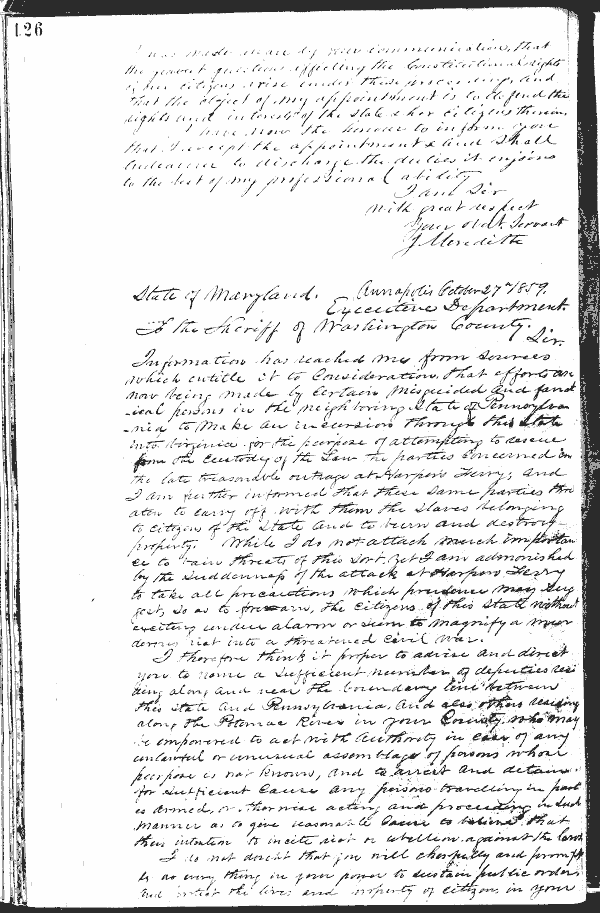 126
I was made aware by your communication, that
the gravest questions affecting the Constitutional rights
of her citizens arise under these proceedings, and
that the object of my appointment is to defend the
rights and interests of the State & her Citizens therein.
I have now the honour to inform you
that I accept the appointment & and shall
endeavour to discharge the duties it enjoins
to the best of my professional ability
I am Sir
With great respect
Your Obdt. Servant
J Meredith
State of Maryland. Annapolis October 27th 1859.
Executive Department.
To the Sheriff of Washington County.
Sir.
Information has reached me from sources
which entitle it to Consideration that efforts are
now being made by Certain misguided and fanat
-ical persons in the neighboring State of Pennsylva
-nia to make an incursion through this State
into Virginia for the purpose of attempting to rescue
from the Custody of the Law the parties concerned in
the late treasonable outrage at Harpers Ferry, and
I am further informed that these same parties thre
aten to carry off with them the slaves belonging
to citizens of the State and to burn and destroy
property. While I do not attach much importan
ce to vain threats of this sort, yet I am admonished
by the suddenness of the attack at Harpers Ferry
to take all precautions which prudence may sug
gest, so as to forewarn, the citizens of this State without
exciting undue alarm or seem to magnify a mur
derous riot into a threatened civil war.
I therefore think it proper to advise and direct
you to name a sufficient number of deputies resi
ding along and near the boundary line between
this State and Pennsylvania, and also others residing
along the Potomac River in your County, who may
be empowered to act with authority in case of any
unlawful or unusual assemblage of persons whose
purpose is not known, and to arrest and detain
for sufficient Cause any persons travelling in part
es armed, or otherwise acting and proceeding in such
manner as to give reasonable Cause to believe that
their intention to incite riot or rebellion against the laws
I do not doubt that you will cheerfully and prompt
ly do every thing in your power to sustain public order
and protect the lives and property of citizens in your